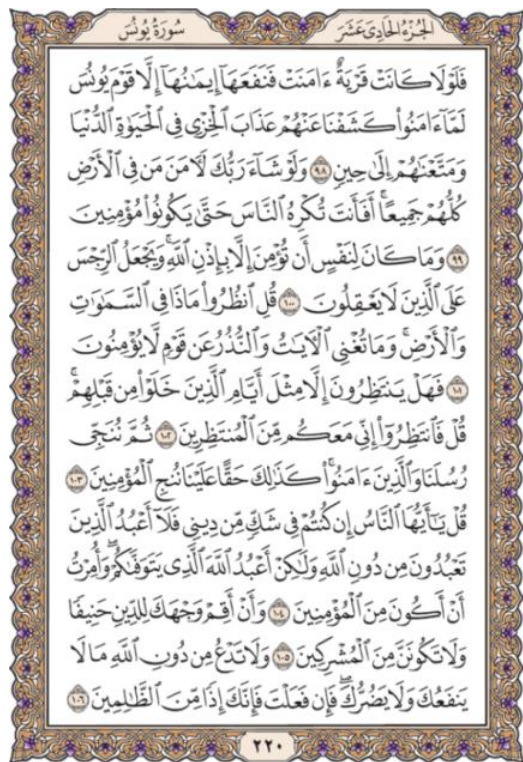 الجزء الحادي عشر
سورة يونس
فَلَوْلَا كَانَتْ قَرْيَةٌ ءَامَنَتْ فَنَفَعَهَآ إِيمَٰنُهَآ إِلَّا قَوْمَ يُونُسَ
لَمَّآ ءَامَنُوا۟ كَشَفْنَا عَنْهُمْ عَذَابَ ٱلْخِزْىِ فِى ٱلْحَيَوٰةِ ٱلدُّنْيَا
وَمَتَّعْنَٰهُمْ إِلَىٰ حِينٍ ٩٨ وَلَوْ شَآءَ رَبُّكَ لَءَامَنَ مَن فِى ٱلْأَرْضِ
كُلُّهُمْ جَمِيعًا ۚ أَفَأَنتَ تُكْرِهُ ٱلنَّاسَ حَتَّىٰ يَكُونُوا۟ مُؤْمِنِينَ
٩٩ وَمَا كَانَ لِنَفْسٍ أَن تُؤْمِنَ إِلَّا بِإِذْنِ ٱللَّهِ ۚ وَيَجْعَلُ ٱلرِّجْسَ
عَلَى ٱلَّذِينَ لَا يَعْقِلُونَ ١٠٠ قُلِ ٱنظُرُوا۟ مَاذَا فِى ٱلسَّمَٰوَٰتِ
وَٱلْأَرْضِ ۚ وَمَا تُغْنِى ٱلْءَايَٰتُ وَٱلنُّذُرُ عَن قَوْمٍ لَّا يُؤْمِنُونَ
١٠١ فَهَلْ يَنتَظِرُونَ إِلَّا مِثْلَ أَيَّامِ ٱلَّذِينَ خَلَوْا۟ مِن قَبْلِهِمْ ۚ
قُلْ فَٱنتَظِرُوٓا۟ إِنِّى مَعَكُم مِّنَ ٱلْمُنتَظِرِينَ ١٠٢ ثُمَّ نُنَجِّى
رُسُلَنَا وَٱلَّذِينَ ءَامَنُوا۟ ۚ كَذَٰلِكَ حَقًّا عَلَيْنَا نُنجِ ٱلْمُؤْمِنِينَ ١٠٣
قُلْ يَٰٓأَيُّهَا ٱلنَّاسُ إِن كُنتُمْ فِى شَكٍّ مِّن دِينِى فَلَآ أَعْبُدُ ٱلَّذِينَ
تَعْبُدُونَ مِن دُونِ ٱللَّهِ وَلَٰكِنْ أَعْبُدُ ٱللَّهَ ٱلَّذِى يَتَوَفَّىٰكُمْ ۖ وَأُمِرْتُ
أَنْ أَكُونَ مِنَ ٱلْمُؤْمِنِينَ ١٠٤ وَأَنْ أَقِمْ وَجْهَكَ لِلدِّينِ حَنِيفًا
وَلَا تَكُونَنَّ مِنَ ٱلْمُشْرِكِينَ ١٠٥ وَلَا تَدْعُ مِن دُونِ ٱللَّهِ مَا لَا
يَنفَعُكَ وَلَا يَضُرُّكَ ۖ فَإِن فَعَلْتَ فَإِنَّكَ إِذًا مِّنَ ٱلظَّٰلِمِينَ ١٠٦
٢٢٠